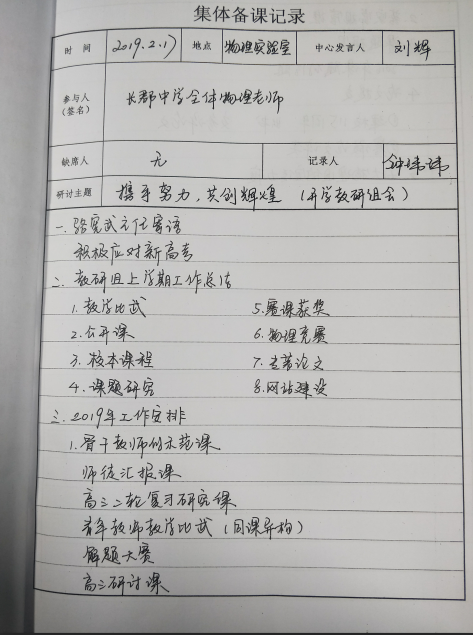 集体备课记录
时 间 2019.2.17 地点 物理实验室 中心发言人 刘辉
参与人
(签名)
长郡中学全体物理老师
缺席人 无 记录人 钟炜炜
研讨主题 携手努力,共创辉煌 (开学教研组会)
一.骆宪武主任寄语
积极应对新高考
二.教研组上学期工作总结
1.教学比武 5.赛课获奖
2.公开课 6.物理竞赛
3.校本课程 7.专著论文
4.课题研究 8.网站建设
三.2019年工作安排
1.骨干教师的示范课
师徒汇报课
高三二轮复习研究课
青年教师教学比武(同课异构)
解题大赛
高三研讨课